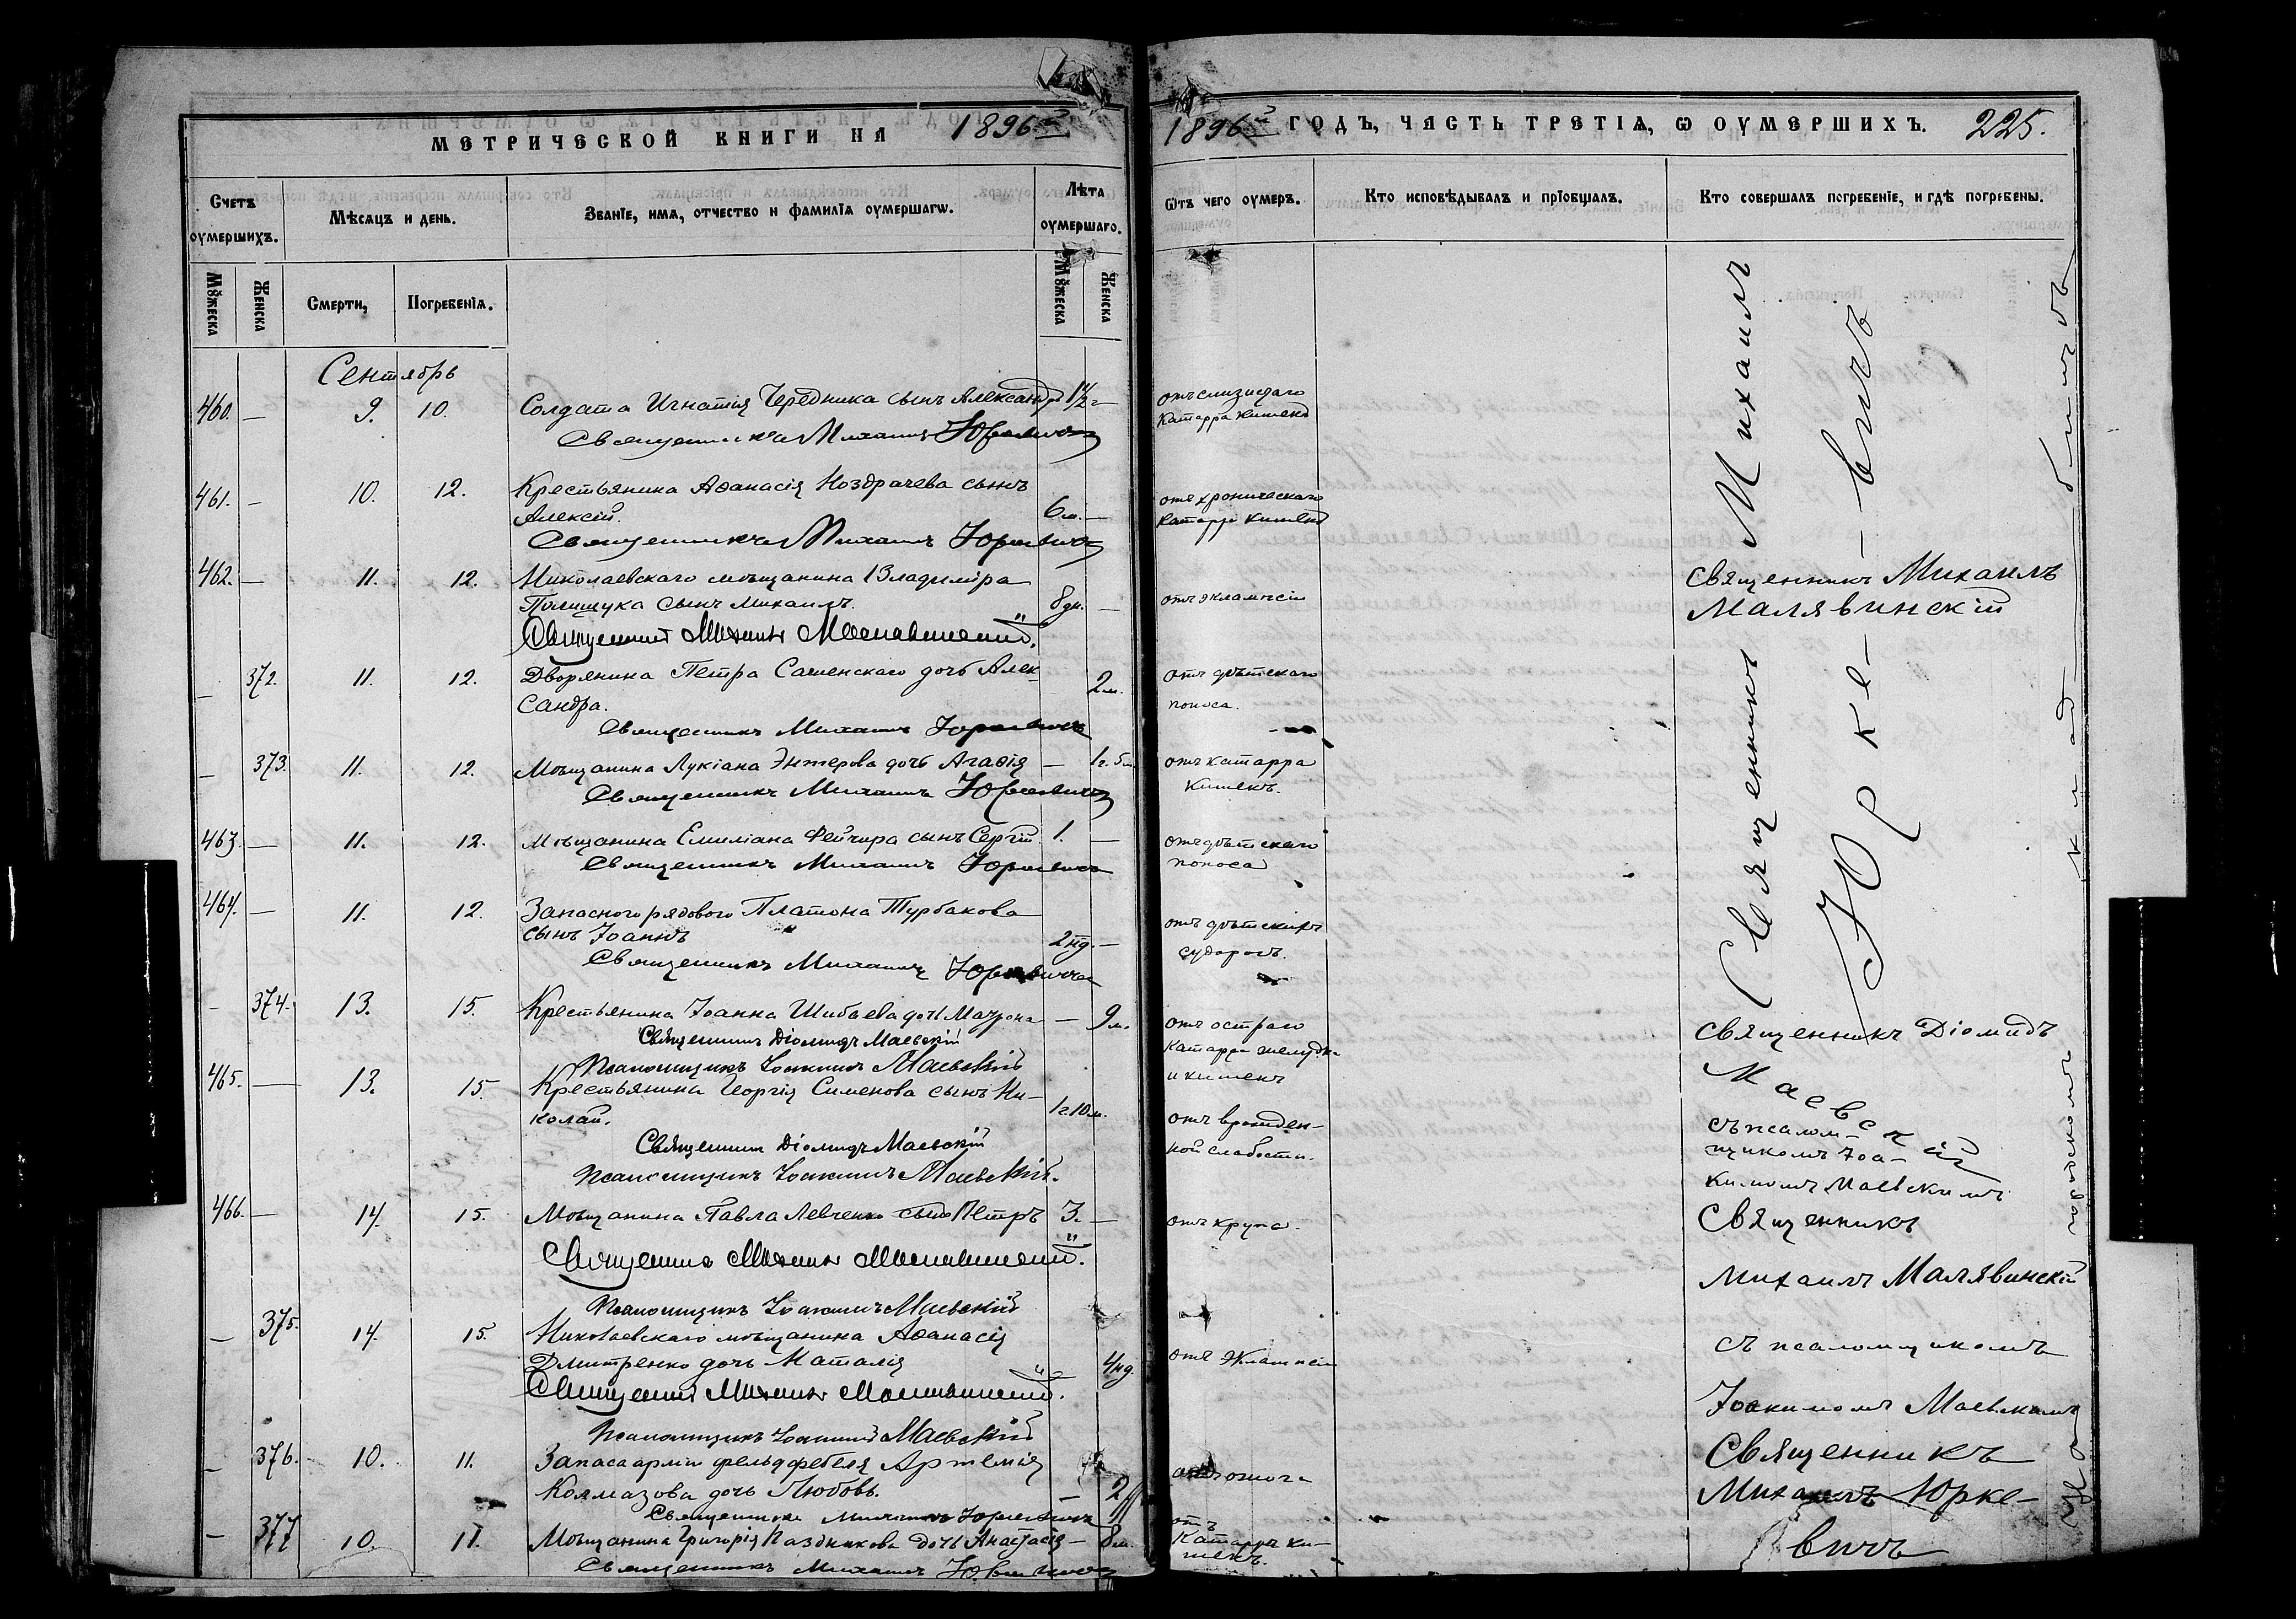 МЕТРИЧЕСКОЙ КНИГИ НА 1896й
1896й ГОДЪ, ЧАСТЬ ТРЕТІѦ, Ѡ ОУМЕРШИХЪ. 225.
Счетъ оумершихъ.
Мѣсяцъ и день.
Званіе, имя, отчество и фамилія оумершагѡ.
Лѣта оумершаго.
Ѿтъ чего оумеръ.
Кто исповѣдывалъ и пріобщалъ.
Кто совершалъ погребеніе, и гдѣ погребены.
Мꙋжеска
Женска
Смерти,
Погребенія.
Мꙋжеска
Женска
Сентябрь
460. — 9. 10. Солдата Игнатія Чередника сынъ Александръ 1 1/2 г —
отъ слизистаго
катарра кишекъ
Священникъ Михаилъ Юркевичъ
461. — 10. 12. Крестьянина Аѳанасія Ноздрачева сынъ
Алексій. 6 м. —
отъ хроническаго
катарра кишекъ
Священникъ Михаилъ Юркевичъ
462. — 11. 12. Николаевскаго мѣщанина Владиміра
Полищука сынъ Михаилъ. 8 дн. —
отъ эклампсіи
Священникъ Михаилъ Малявинскій.
— 372. 11. 12. Дворянина Петра Сашенскаго дочь Алек-
сандра. 2 м.
отъ дѣтскаго
поноса.
Священникъ Михаилъ Юркевичъ
— 373. 11. 12. Мѣщанина Лукіана Энтерова дочь Агаѳія — 1 г. 5 м.
отъ катарра
кишекъ.
Священникъ Михаилъ Юркевичъ
463. — 11. 12. Мѣщанина Емиліана Фейчира сынъ Сергій. 1. —
отъ дѣтскаго
поноса
Священникъ Михаилъ Юркевичъ
464. — 11. 12. Запасного рядового Платона Турбакова
сынъ Іоаннъ 2 нд. —
отъ дѣтскихъ
судорогъ.
Священникъ Михаилъ Юркевичъ
— 374. 13. 15. Крестьянина Іоанна Шибаева дочь Маѵрона — 9 м.
отъ остраго
катарра желудка
и кишекъ
Священникъ Діомидъ Маевскій
Псаломщикъ Іоакимъ Маевскій
465. — 13. 15. Крестьянина Георгія Сименова сынъ Ни-
колай. 1 г 10 м.
отъ врожден-
ной слабости.
Священникъ Діомидъ Маевскій
Псаломщикъ Іоакимъ Маевскій.
466. — 14. 15. Мѣщанина Павла Левченко сынъ Петръ 3. —
отъ крупа.
Священникъ Михаилъ Малявинскій.
Псаломщикъ Іоакимъ Маевскій
— 375. 14. 15. Николаевскаго мѣщанина Аѳанасія
Дмитренко дочь Наталія 4 нд.
отъ эклампсіи
Священникъ Михаилъ Малявинскій.
Псаломщикъ Іоакимъ Маевскій
— 376. 10. 11. Запаса арміи фельдфебеля Артемія
Колмазова дочь Любовь. — 2
отъ ожога
Священникъ Михаилъ Юркевичъ
— 377 10. 11. Мѣщанина Григорія Паздникова дочь Анастасія — 8 м.
отъ
катарра ки-
шекъ.
Священникъ Михаилъ Юркевичъ
Священникъ Михаилъ
Юрке-вичъ
Священникъ Михаилъ
Малявинскій
Священникъ Діомидъ
Маевскій
съ псалом-
щикомъ Іоа-
кимомъ Маевскимъ
Священникъ
Михаилъ Малявинскій
съ псаломщикомъ
Іоакимомъ Маевскимъ
Священникъ
Михаилъ Юрке-
вичъ
На городскомъ кладбищѣ